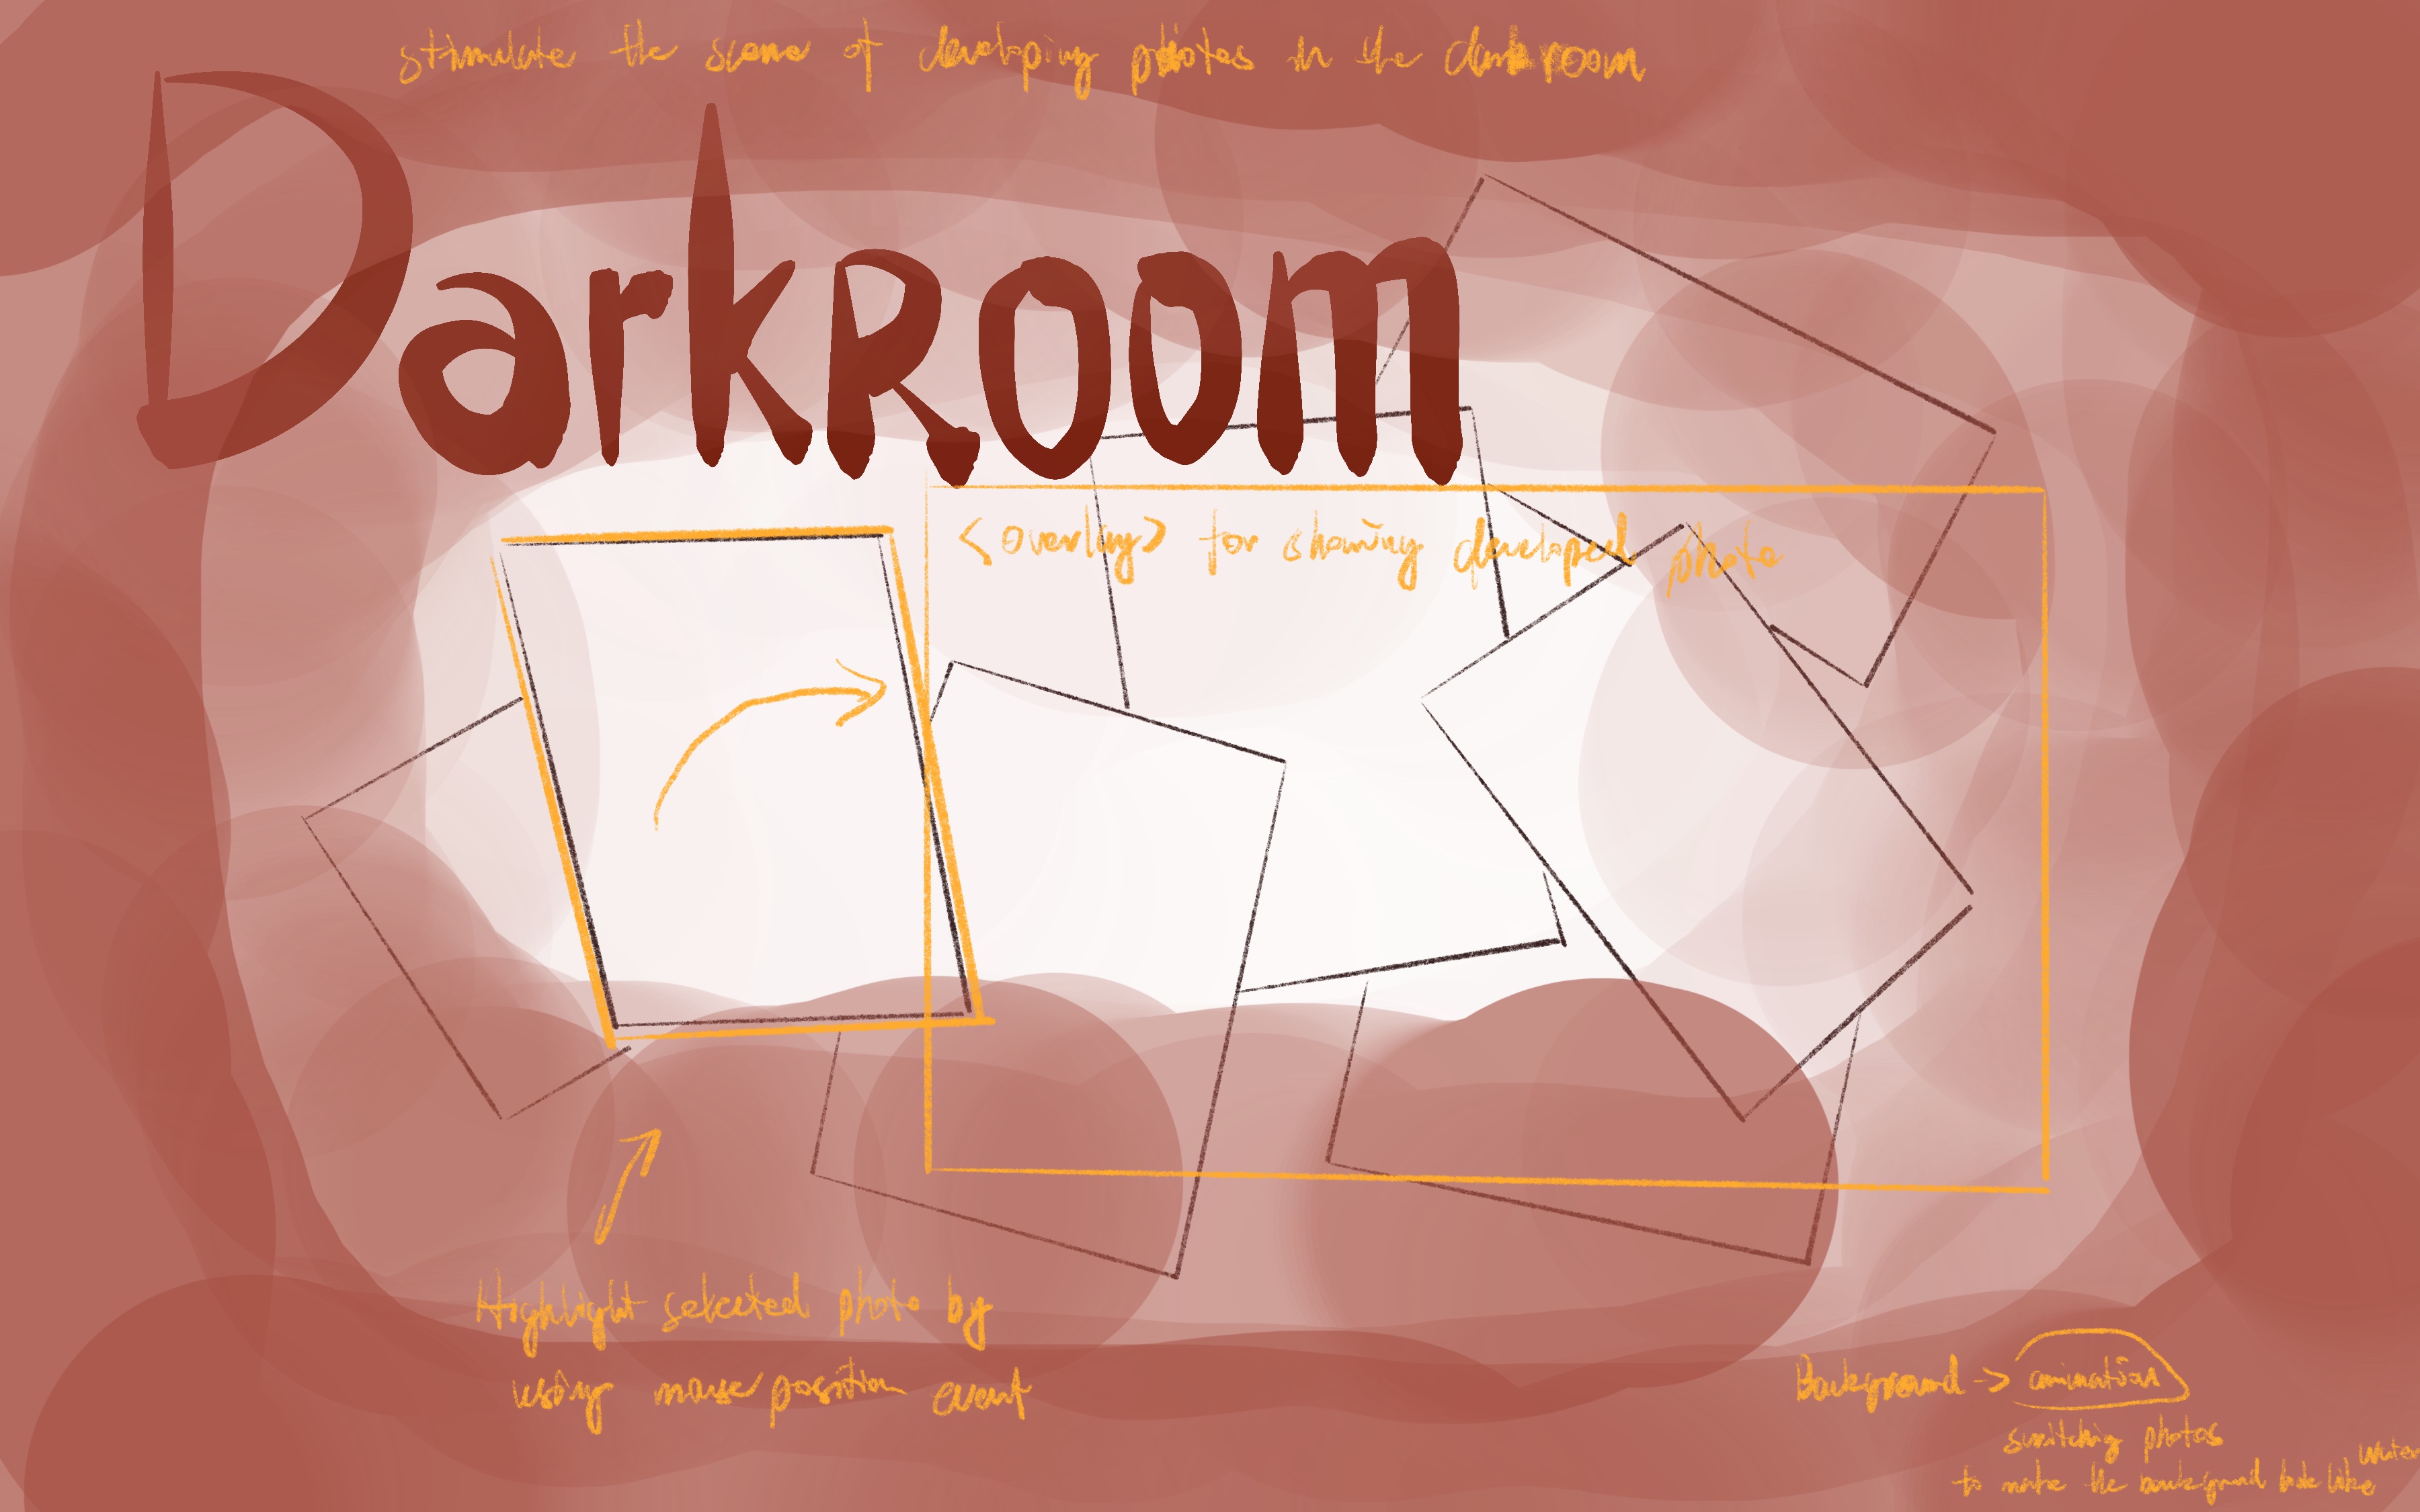 stimulate the scene of developing photos in the darkroom
DarkRoom
<overlay> for showing developed photo
Highlight selected photo by
using mouse position event
Background -> animation
switching photos
to make the background look like water